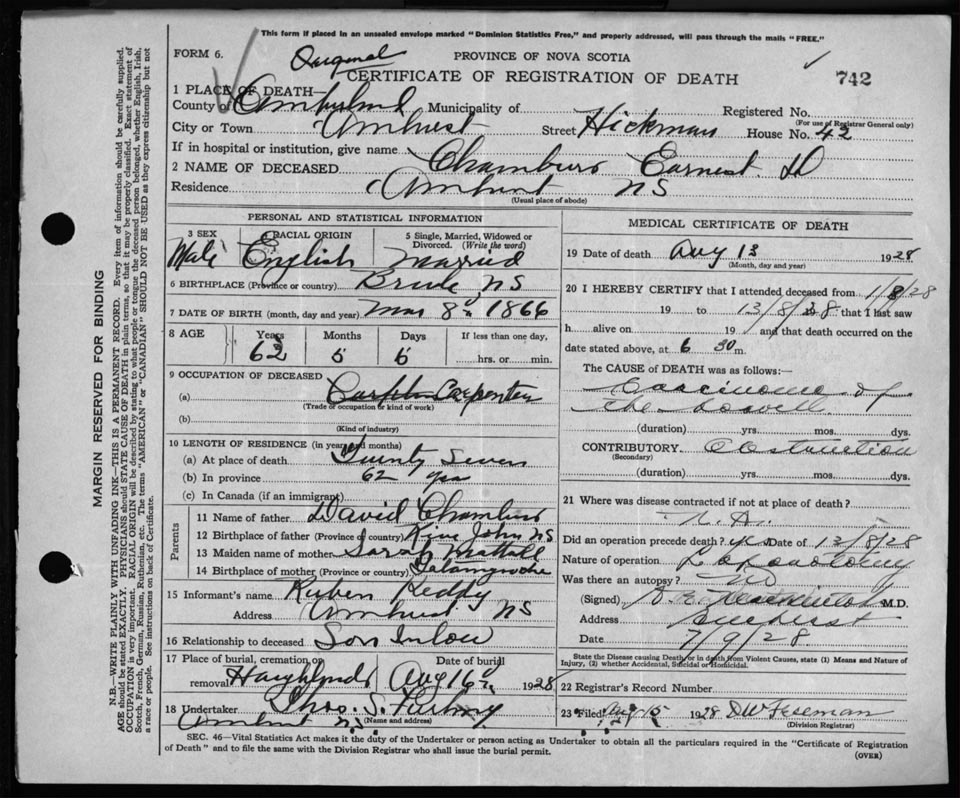 This form if placed in an unsealed envelope marked "Dominion Statistics Free," and properly addressed, will pass through the mails "FREE."
FORM 6. Original PROVINCE OF NOVA SCOTIA
CERTIFICATE OF REGISTRATION OF DEATH 742
1 PLACE OF DEATH—
County of Cumberland Municipality of Registered No.
(For use of Registrar General only)
City or Town Amherst Street Hickman House No. 42
If in hospital or institution, give name
2 NAME OF DECEASED Chambers Earnest D
Residence Amherst NS
(Usual place of abode)
PERSONAL AND STATISTICAL INFORMATION
3 SEX 4 RACIAL ORIGIN 5 Single, Married, Widowed or Divorced. (Write the word)
Male English Married
6 BIRTHPLACE (Province or country) NS
7 DATE OF BIRTH (month, day and year) Mar 8th 1866
8 AGE Years Months Days If less than one day,
62 5 6 hrs. or min.
9 OCCUPATION OF DECEASED
(a) Carpenter
(Trade or occupation or kind of work)
(b)
(Kind of industry)
10 LENGTH OF RESIDENCE (in years and months)
(a) At place of death Twenty Seven
(b) In province 62 yrs
(c) In Canada (if an immigrant)
Parents
11 Name of father David Chambers
12 Birthplace of father (Province or country) River John NS
13 Maiden name of mother Sarah
14 Birthplace of mother (Province or country) Tatamagouche
15 Informant's name Ruben Reddy
Address Amherst NS
16 Relationship to deceased Son in law
17 Place of burial, cremation or removal Date of burial
Highland Aug 16th 1928
18 Undertaker Thos. S.
Amherst NS (Name and address)
MEDICAL CERTIFICATE OF DEATH
19 Date of death Aug 13 1928
(Month, day and year)
20 I HEREBY CERTIFY that I attended deceased from 1/8/28
19 to 13/8/28 that I last saw
h alive on 19 and that death occurred on
date stated above, at 6 30 m.
The CAUSE of DEATH was as follows:—
Carcinoma of
the bowell
(duration) yrs. mos. dys.
CONTRIBUTORY Obstruction
(Secondary)
(duration) yrs. mos. dys.
21 Where was disease contracted if not at place of death?
Did an operation precede death? yes Date of 12/8/28
Nature of operation
Was there an autopsy? No
(Signed) M.D.
Address Amherst
Date 7/9/28
State the Disease causing Death, or in death from Violent Causes, state (1) Means and Nature of Injury, (2) whether Accidental, Suicidal or Homicidal.
22 Registrar's Record Number
23 Filed Aug 15 1928 D W Freeman
(Division Registrar)
SEC. 46—Vital Statistics Act makes it the duty of the Undertaker or person acting as Undertaker to obtain all the particulars required in the "Certificate of Registration
of Death" and to file the same with the Division Registrar who shall issue the burial permit. (OVER)
MARGIN RESERVED FOR BINDING
N.B.—WRITE PLAINLY WITH UNFADING INK—THIS IS A PERMANENT RECORD. Every item of information should be carefully supplied.
AGE should be stated EXACTLY. PHYSICIANS should STATE CAUSE OF DEATH in plain terms, so that it may be properly classified. Exact statement of
OCCUPATION is very important. RACIAL ORIGIN will be described by stating to what people or tongue the deceased person belonged, whether English, Irish,
Scotch, French, German, Russian, Ruthenian, etc. The terms "AMERICAN" or "CANADIAN" SHOULD NOT BE USED as they express citizenship but not
a race or people. See instructions on back of Certificate.